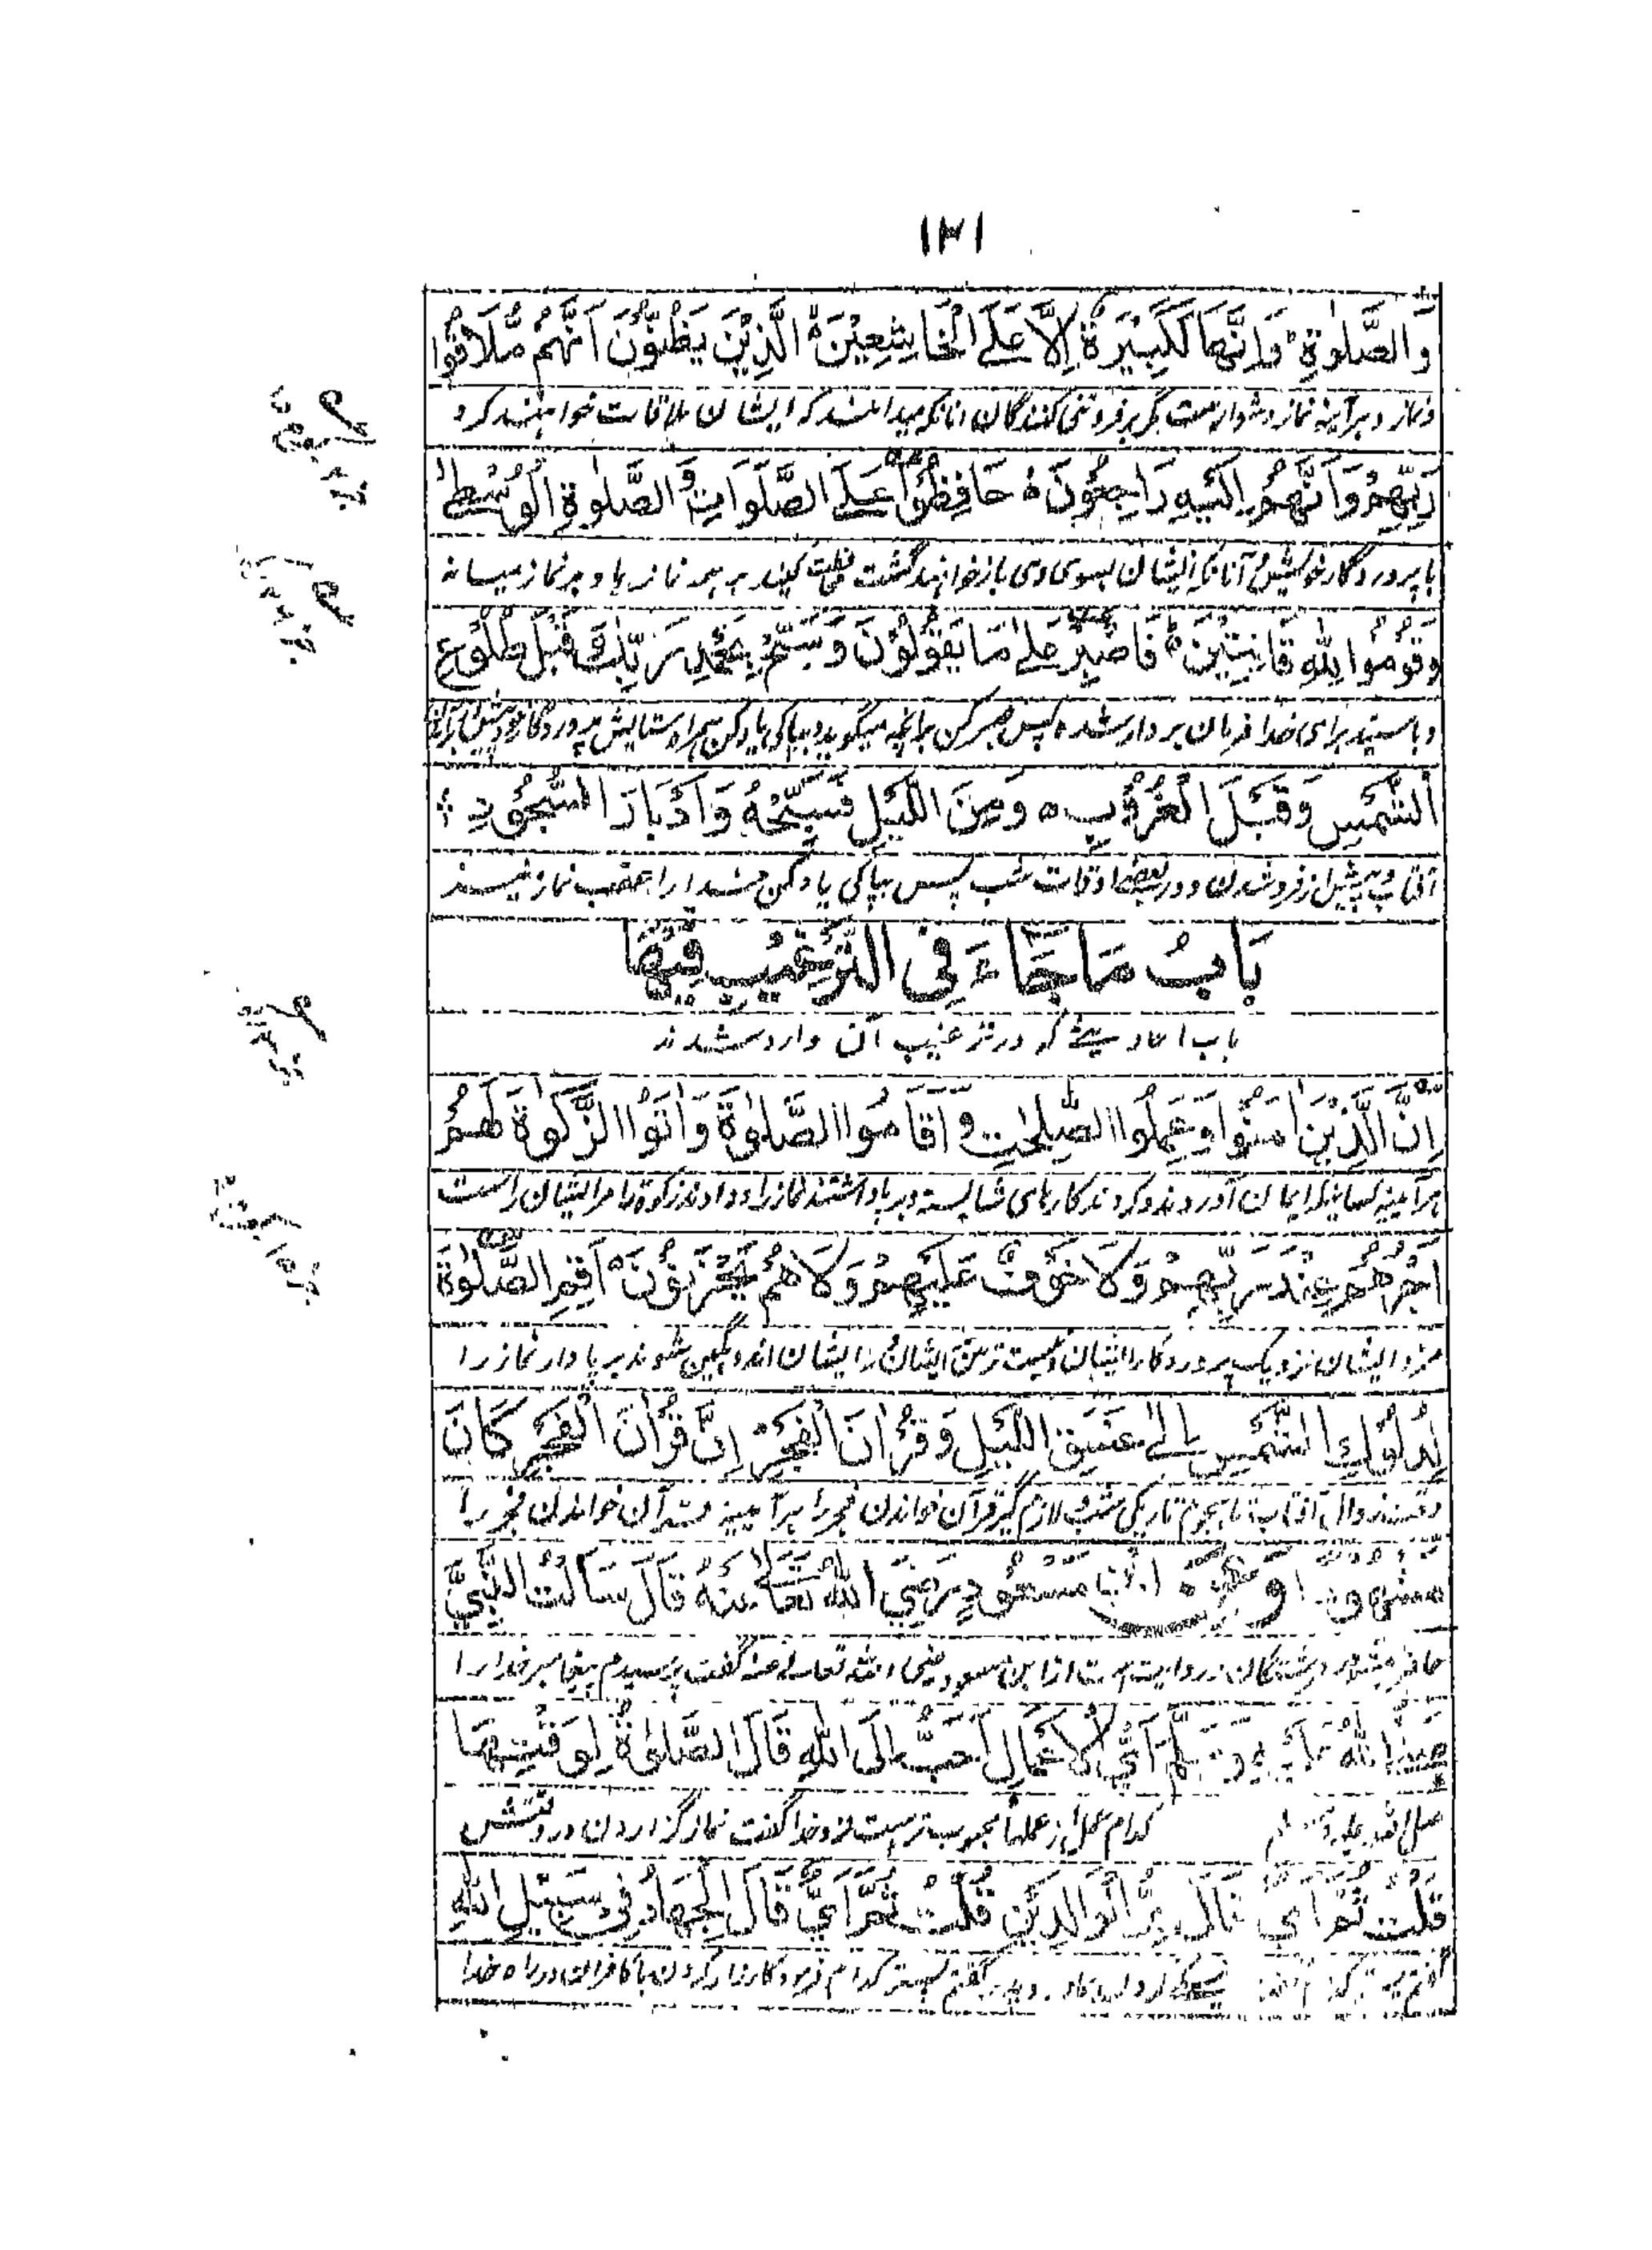 ۱۳۱
وَالصَّلٰوةِ وَاِنَّهَا لَكَبِيْرَةٌ اِلَّا عَلَى الْخَاشِعِيْنَ الَّذِيْنَ يَظُنُّوْنَ اَنَّهُمْ مُّلَاقُوْا
ونماز وهرآینه نماز دشوارست مگر برفروتنی کنندگان آنانکه میدانند که ایشان ملاقات خواهند کرد
رَبِّهِمْ وَاَنَّهُمْ اِلَيْهِ رَاجِعُوْنَ حَافِظُوْا عَلَى الصَّلَوَاتِ وَالصَّلٰوةِ الْوُسْطٰى
با پروردگار خویش و آنانکه ایشان بسوی وی باز خواهند گشت کنید بر همه نمازها و بر نماز میانه
وَقُوْمُوْا لِلّٰهِ قَانِتِيْنَ فَاصْبِرْ عَلٰى مَا يَقُوْلُوْنَ وَسَبِّحْ بِحَمْدِ رَبِّكَ قَبْلَ طُلُوْعِ
وبایستید برای خدا فرمان بردار شده پس صبر کن برآنچه میگویند وبپاکی یاد کن همراه ستایش پروردگار خود پیش از برآمدن
الشَّمْسِ وَقَبْلَ الْغُرُوْبِ ه وَمِنَ اللَّيْلِ فَسَبِّحْهُ وَاَدْبَارَ السُّجُوْدِ
آفتاب و پیش از فروشدن و در بعض اوقات شب پس بپاکی یاد کن خدا را و عقب نماز نیز
بَابُ مَا جَاءَ فِى التَّرْغِيْبِ فِيْهَا
باب احادیثی که در ترغیب آن وارد شدند
اِنَّ الَّذِيْنَ اٰمَنُوْا وَعَمِلُوا الصّٰلِحٰتِ وَاَقَامُوا الصَّلٰوةَ وَاٰتَوُا الزَّكٰوةَ لَهُمْ
هرآینه کسانیکه ایمان آوردند وکردند کارهای شایسته وبرپا داشتند نماز را و دادند زکوة را مر ایشان راست
اَجْرُهُمْ عِنْدَ رَبِّهِمْ وَلَا خَوْفٌ عَلَيْهِمْ وَلَا هُمْ يَحْزَنُوْنَ اَقِمِ الصَّلٰوةَ
مزد ایشان نزدیک پروردگار ایشان ونیست ترس ایشان را ایشان اندوهگین شوند برپا دار نماز را
لِدُلُوْكِ الشَّمْسِ اِلٰى غَسَقِ اللَّيْلِ وَقُرْاٰنَ الْفَجْرِ اِنَّ قُرْاٰنَ الْفَجْرِ كَانَ
وقت زوال آفتاب تا هجوم تاریکی شب ولازم گیر قرآن خواندن فجر را هرآینه قرآن خواندن فجر را
مَشْهُوْدًا وَعَنْ ابْنِ مَسْعُوْدٍ رَضِىَ اللّٰهُ تَعَالٰى عَنْهُ قَالَ سَاَلْتُ النَّبِىَّ
حاضر میشوند فرشتگان روایت است از ابن مسعود رضی الله تعالی عنه گفت پرسیدم پیغامبر خدا را
صَلَّى اللّٰهُ عَلَيْهِ وَسَلَّمَ اَىُّ الْاَعْمَالِ اَحَبُّ اِلَى اللّٰهِ قَالَ الصَّلٰوةُ لِوَقْتِهَا
صلی الله علیه وسلم کدام عمل از عملها محبوب ترست نزد خدا گفت نماز گزاردن در وقتش
قُلْتُ ثُمَّ اَىٌّ قَالَ بِرُّ الْوَالِدَيْنِ قُلْتُ ثُمَّ اَىٌّ قَالَ الْجِهَادُ فِىْ سَبِيْلِ اللّٰهِ
گفتم کدام فرمود کارزار کردن با کافران در راه خدا